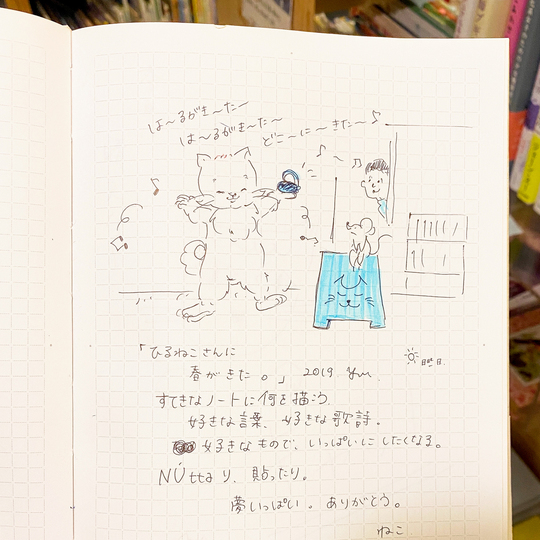 は～るがき～た～
は～るがき～た～
どこ～に～きた～♪
「ひるねこさんに
春がきた。」 2019 yu.
日曜日
すてきなノートに何を描こう。
好きな言葉、好きな歌詩。
好きなもので、いっぱいにしたくなる。
NÚttaり、貼ったり。
夢いっぱい。ありがとう。
ねこ